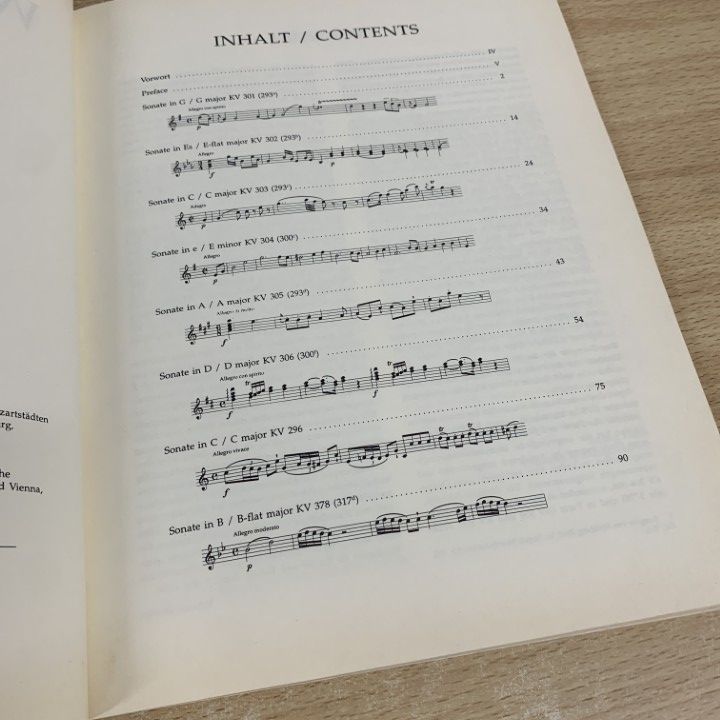 INHALT / CONTENTS
Vorwort IV
Preface V
Sonate in G / G major KV 301 (293ᵃ) 2
Allegro con spirito
p
Sonate in Es / E-flat major KV 302 (293ᵇ) 14
Allegro
f p
Sonate in C / C major KV 303 (293ᶜ) 24
Allegro
p
Sonate in e / E minor KV 304 (300ᶜ) 34
Allegro
p
Sonate in A / A major KV 305 (293ᵈ) 43
Allegro di molto
f
Sonate in D / D major KV 306 (300ˡ) 54
Allegro con spirito
tr tr
f f
Sonate in C / C major KV 296 75
Allegro vivace
tr tr
f
Sonate in B / B-flat major KV 378 (317ᵈ) 90
Allegro moderato
p
zartstädten
rg,
he
d Vienna,